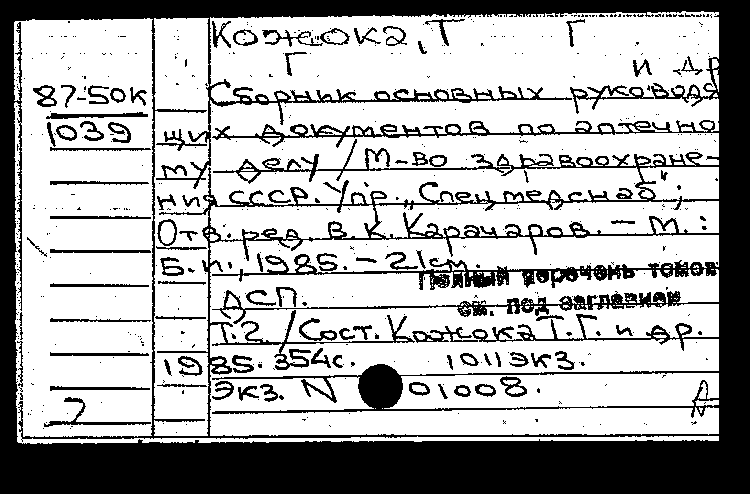 Кожока, Т Г
Г и др
87-50к Сборник основных руководя
1039 щих документов по аптечно
му делу / М-во здравоохране-
ния СССР. Упр. „Спецмедснаб";
Отв. ред. В. К. Карачаров. — М. :
Б. и., 1985. — 21 см.
Полный перечень томов
ДСП. см. под заглавием
Т.2. / Сост. Кожока Т. Г. и др.
1985. 354с. 1011экз.
Экз. N 01008.